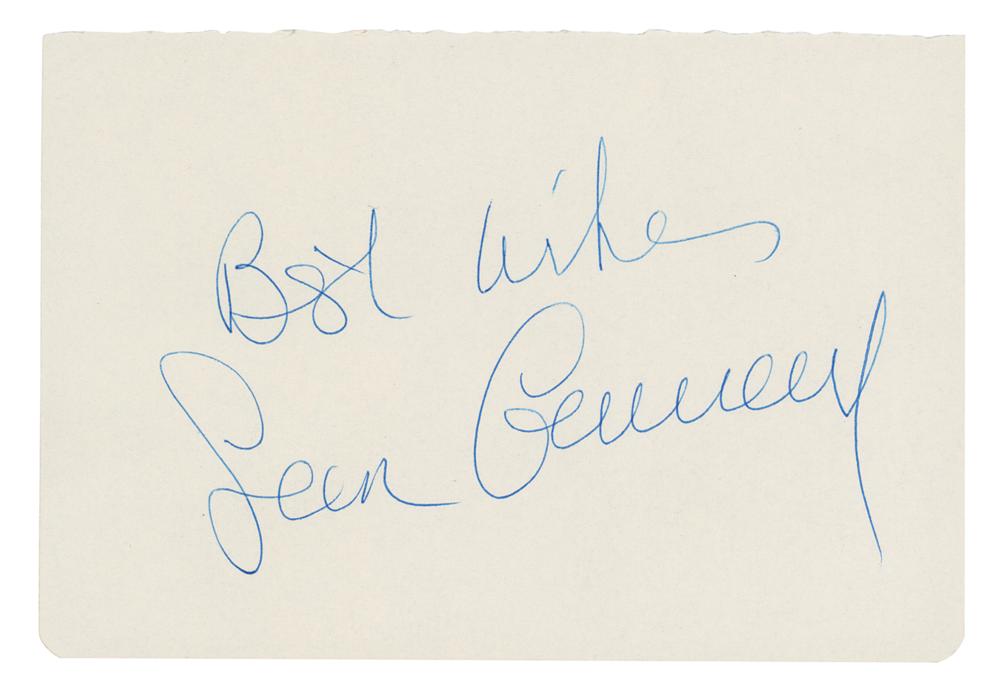 Best Wishes
Sean Connery